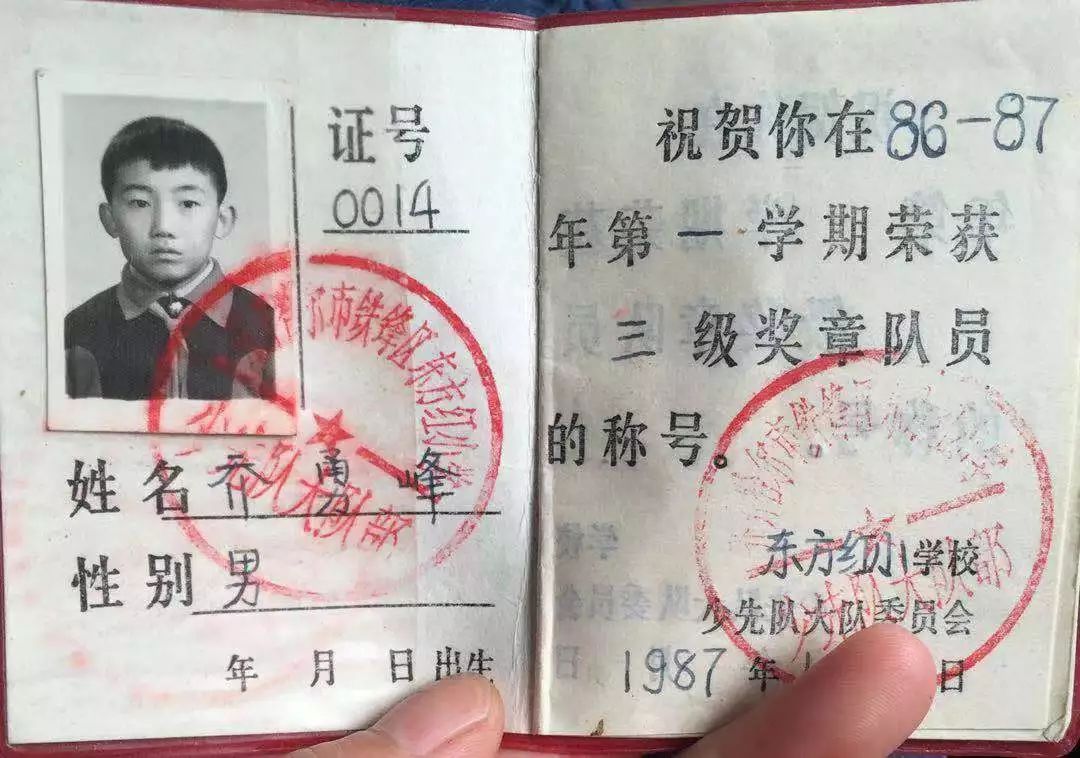 证号
0014
姓名 乔勇峰
性别 男
年 月 日出生
祝贺你在86-87
年第一学期荣获
三级奖章队员
的称号。
东方红小学校
少先队大队委员会
1987年 日
市铁锋区东方红小学
少先队大队部
市铁锋
大队部